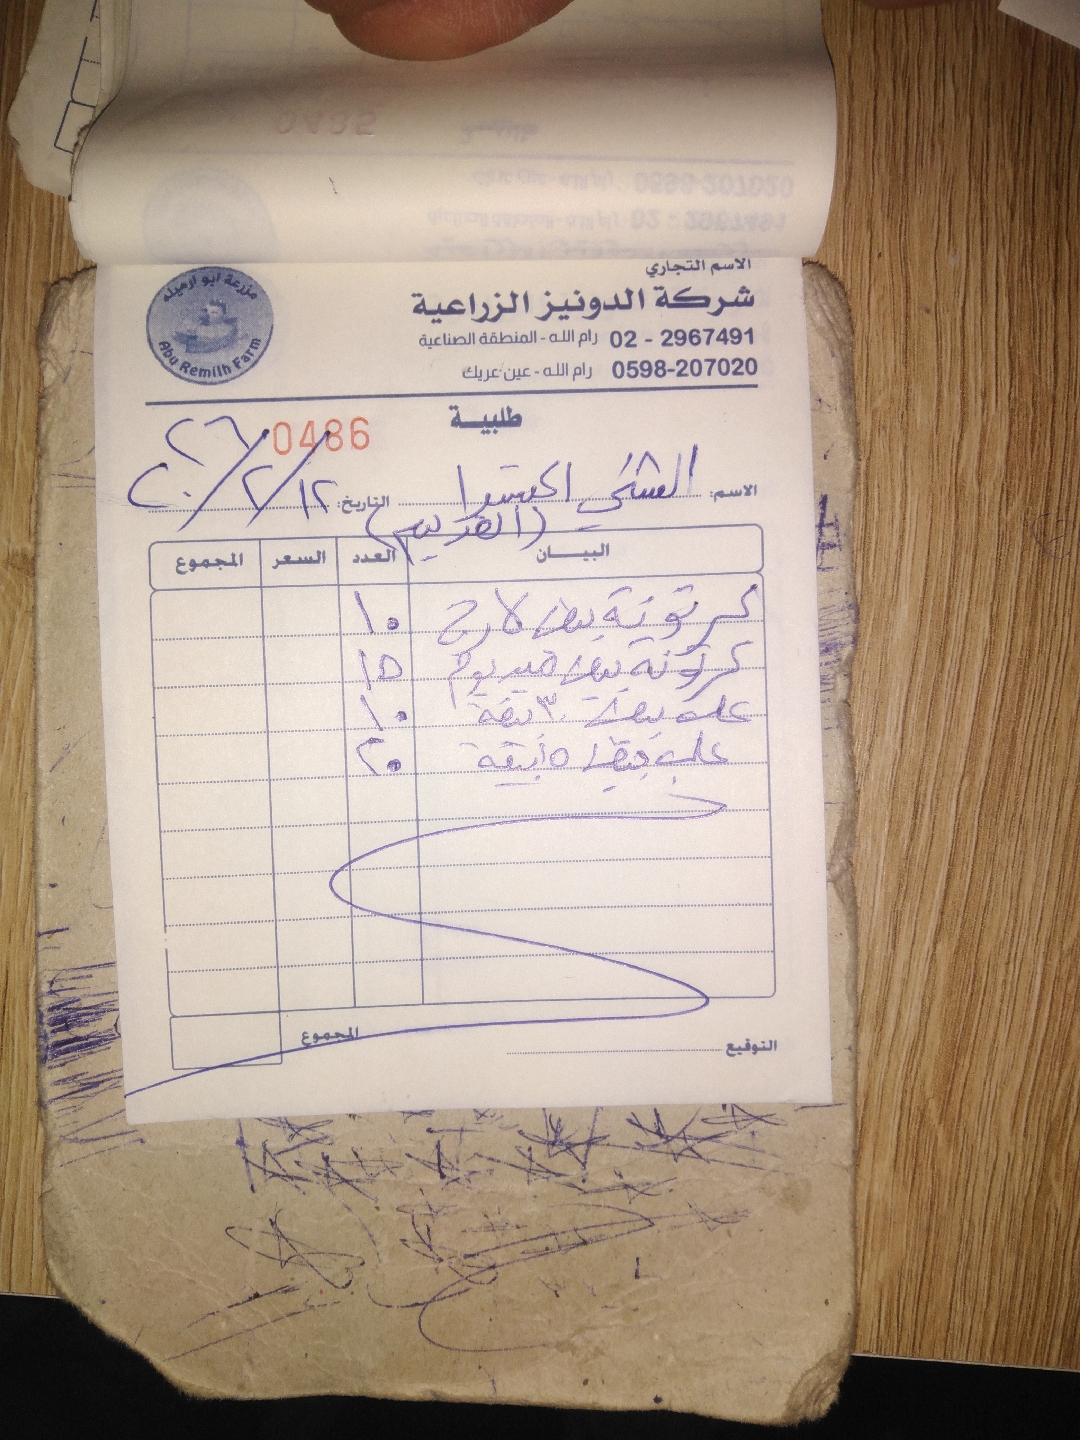 الاسم التجاري
مزرعة ابو ارميله
Abu Remilh Farm
شركة الدونيز الزراعية
02 - 2967491 رام الله - المنطقة الصناعية
0598-207020 رام الله - عين عريك
طلبية
0486
الاسم: الشني
(القديم)
التاريخ: ١٢/٢/٢٠٢٦
البيــان العدد السعر المجموع
كرتونة بيض لارج ١٠
كرتونة بيض ميديوم ١٥
علب بيض ٣٠ بيضة ١٠
علب بيض ١٥ بيضة ٢٠
المجموع
التوقيع